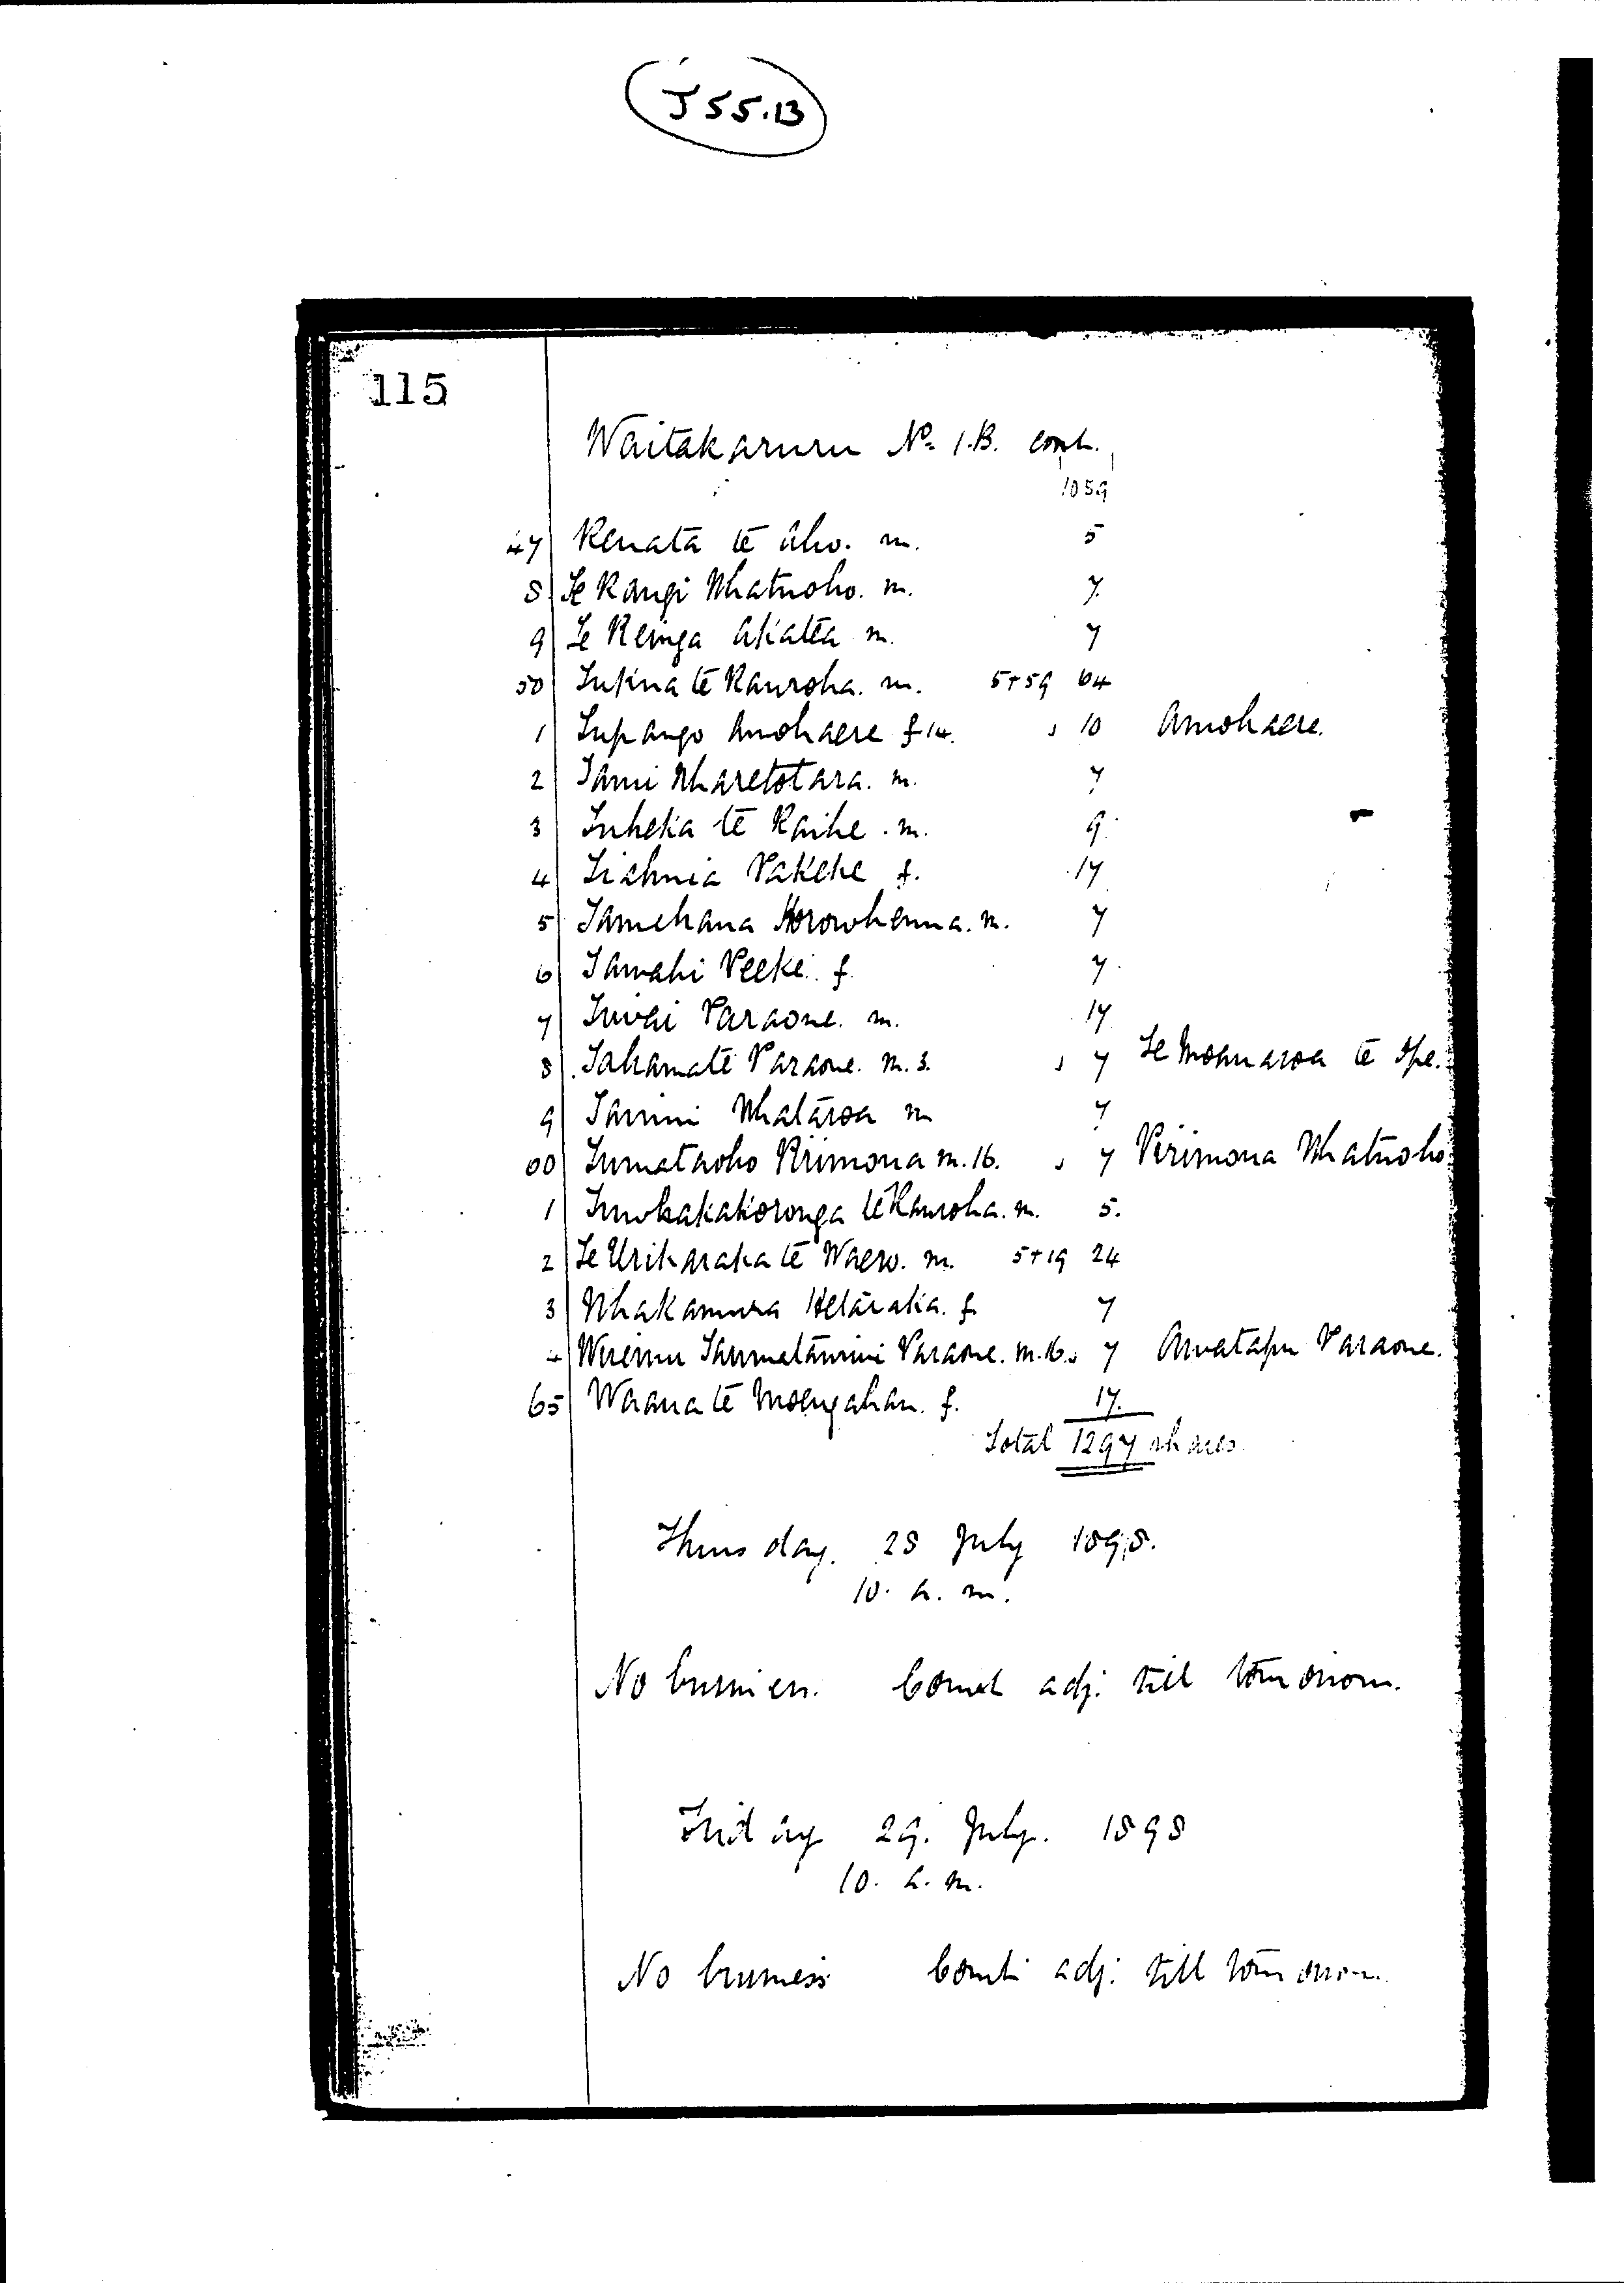 J 55.13
115
Waitakaruru No. 1.B. cont.
1059
47 Renata te Aho. m. 5
8 Te Rangi Whatuoho. m. 7
9 Te Reinga Akatea m. 7
50 Tukua te Rauroha. m. 5+59 64
1 Tupango Amohaere f 14. 10 Amohaere.
2 Tami Wharetotara. m. 7
3 Tuheka te Raihe. m. 9
4 Pakeke f. 17
5 Tamehana Horowhenua. m. 7
6 Tawahi Peeke. f. 7
7 Tuwai Paraone. m. 17
8 Tahamate Paraone. m. 3. 7 Te Moanaroa te Ope.
9 Tamui Whataroa m 7
60 Tumataoho Pirimona m. 16. 7 Pirimona Whatuoho
1 te Rauroha. m. 5.
2 Te Urikaraka te Waero. m. 5+19 24
3 Whakamura Hetaraka. f 7
4 Wiremu Paraone. m. 16. 7 Arwatapu Paraone.
65 Waana te Moengahau. f. 17.
Total 1297 shares
Thursday. 28 July 1898.
10. a. m.
No business. Court adj. till tomorrow.
Friday 29. July. 1898
10. a. m.
No business Court adj. till tomorrow.